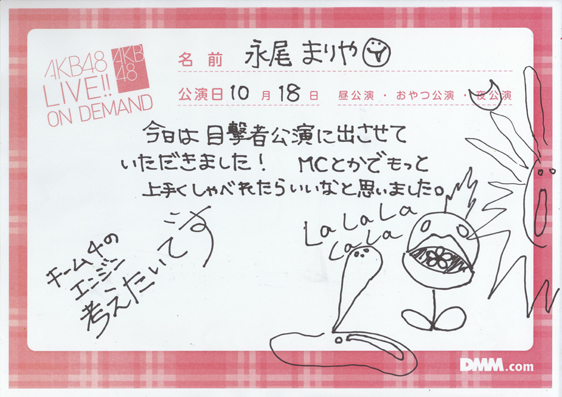 AKB48
LIVE!!
ON DEMAND
AKB
48
名前 永尾 まりや
公演日 10月18日 昼公演・おやつ公演・夜公演
今日は目撃者公演に出させて
いただきました! MCとかでもっと
上手くしゃべれたらいいなと思いました。
チーム4の
エンジン
考えたいです
La La La
La La
DMM.com